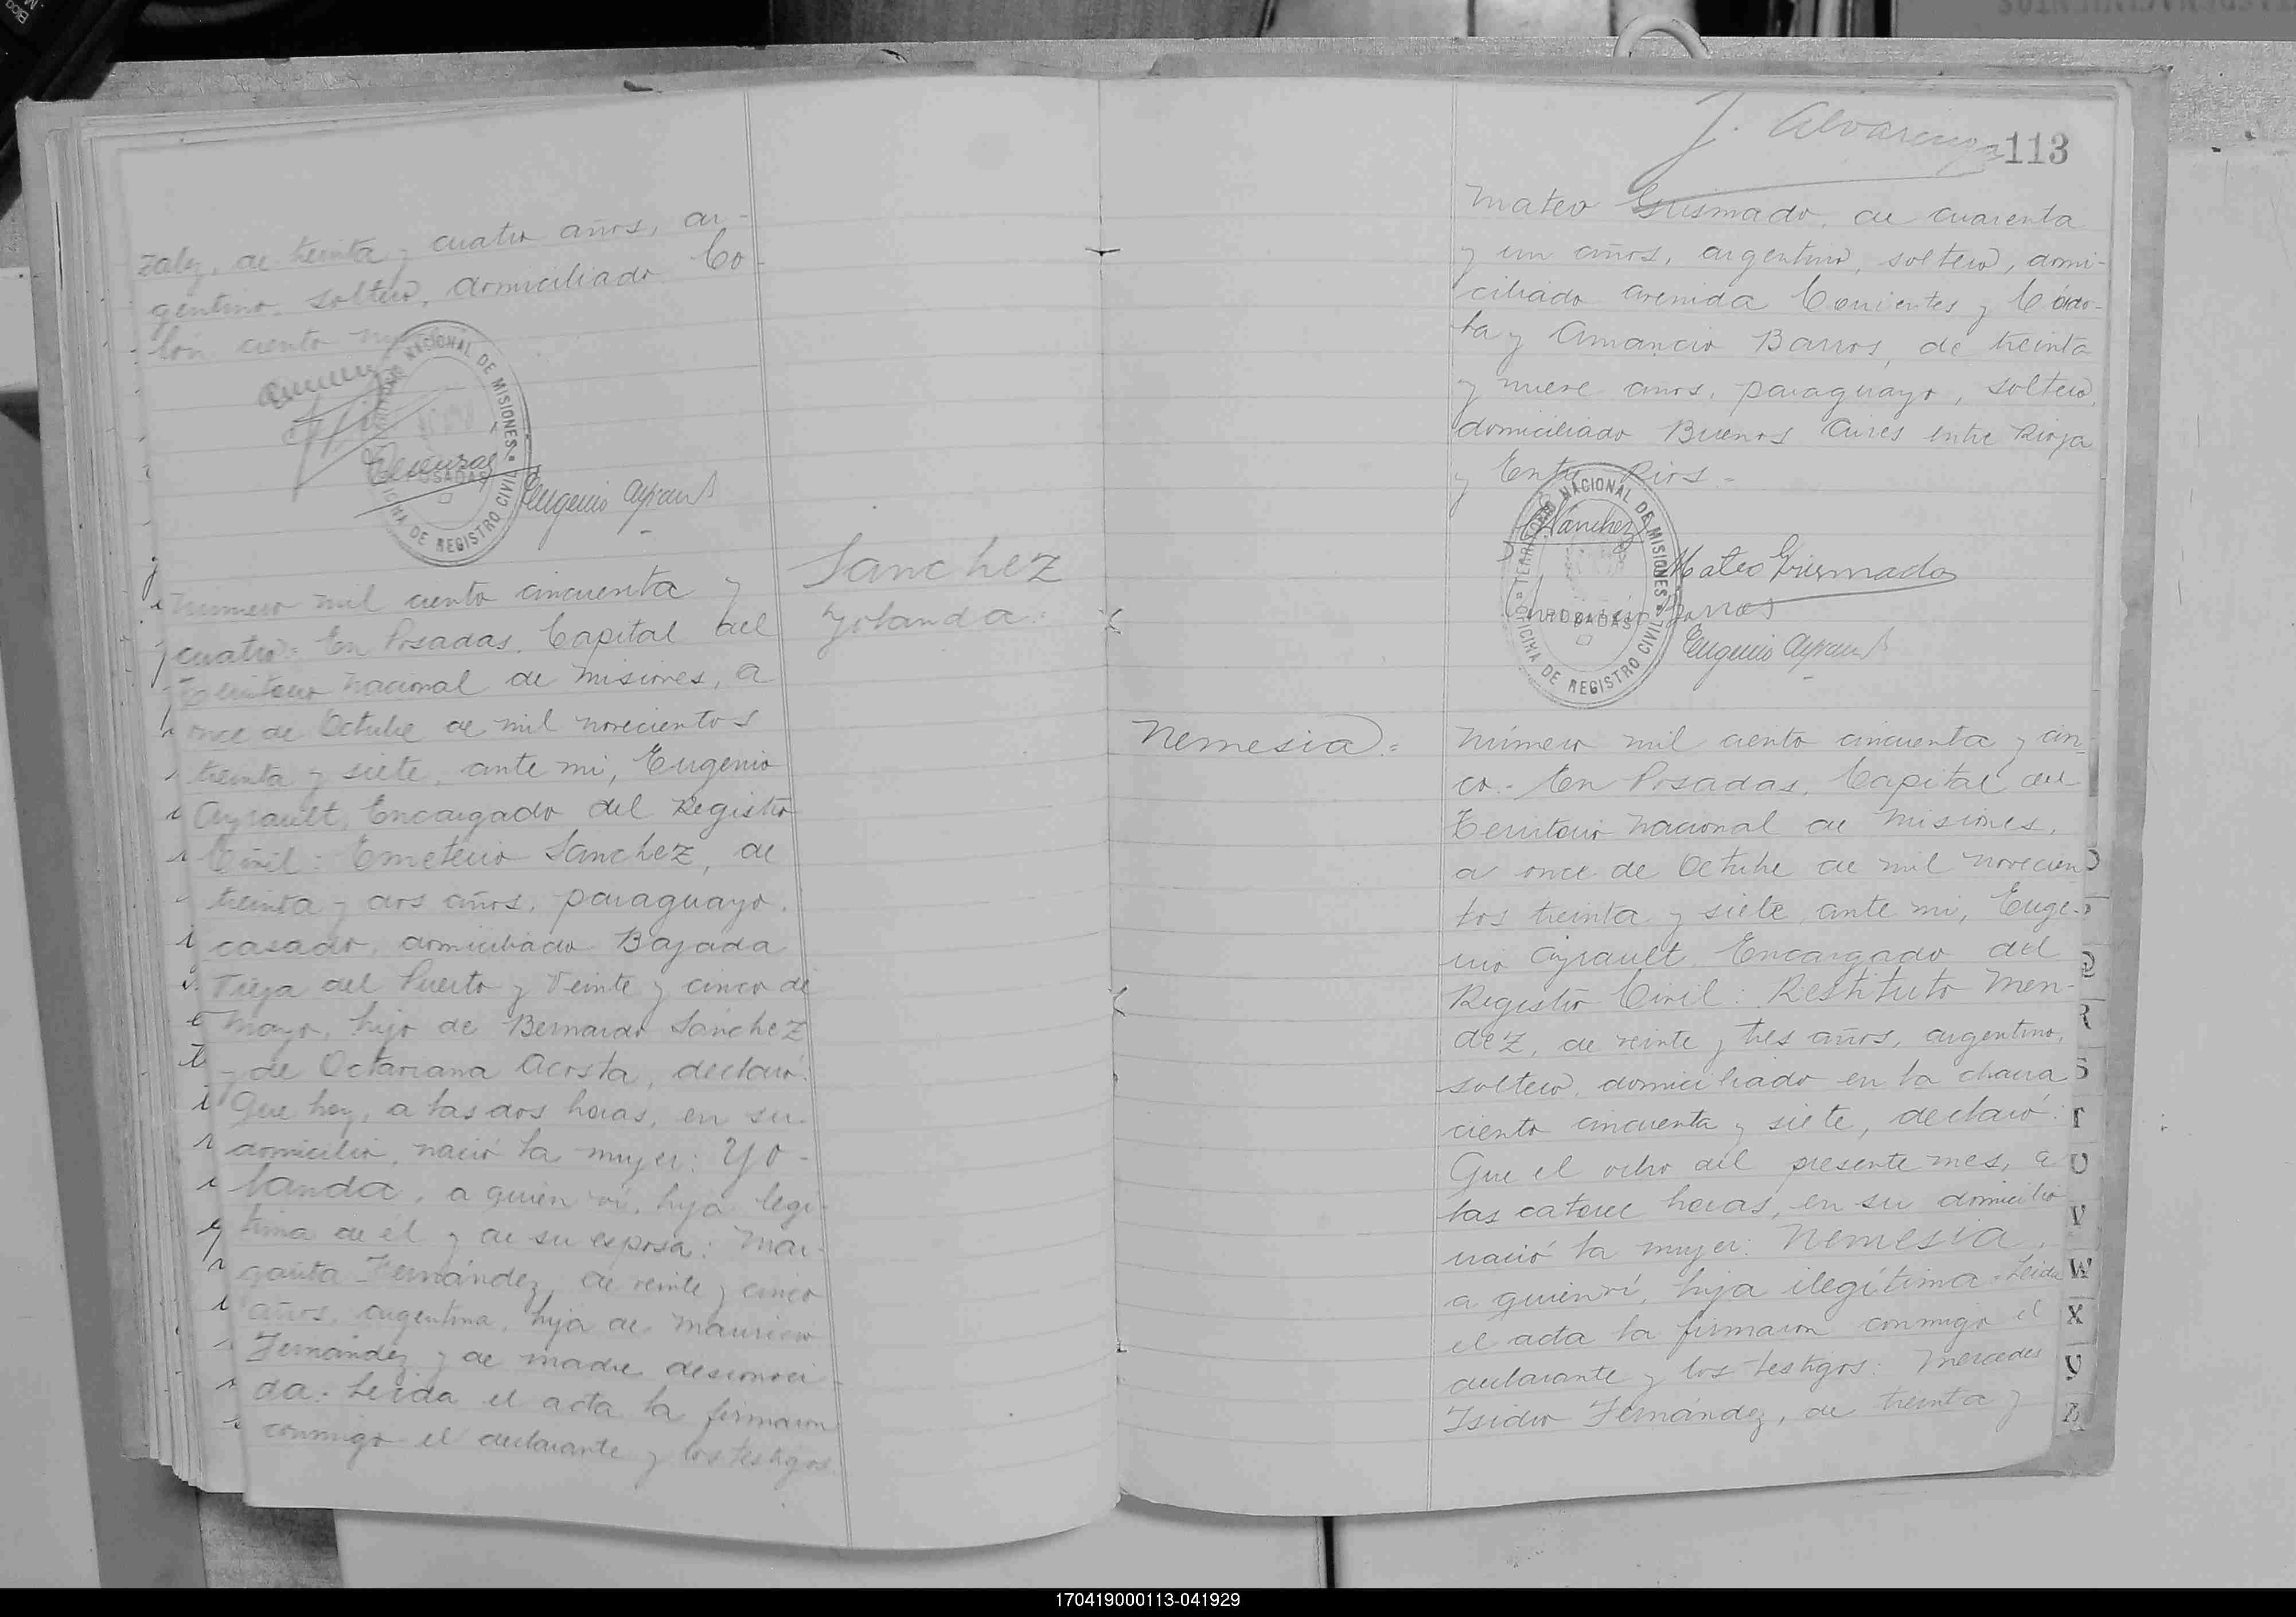 zalez, de treinta y cuatro años, ar-
gentino, soltero, domiciliado Co-
lón ciento
NACIONAL DE MISIONES
POSADAS
OFICINA DE REGISTRO CIVIL
Eugenio Ayrault
Sanchez
Yolanda=
Número mil ciento cincuenta y
cuatro= En Posadas, Capital del
Territorio Nacional de Misiones, a
once de Octubre de mil novecientos
treinta y siete, ante mi, Eugenio
Ayrault, Encargado del Registro
Civil: Emeterio Sanchez, de
treinta y dos años, paraguayo,
casado, domiciliado Bajada
Vieja del Puerto y Veinte y cinco de
Mayo, hijo de Bernardo Sánchez
y de Octaviana Acosta, declaró:
Que hoy, a las dos horas, en su
domicilio, nació la mujer: Yo-
landa, a quien vi, hija legí-
tima de él y de su esposa: Mar-
garita Fernández, de veinte y cinco
años, argentina, hija de Mauricio
Fernández y de madre desconoci-
da.- Leída el acta la firmaron
conmigo el declarante y los testigos
J. Alvarenga
113
Mateo Grismado, de cuarenta
y un años, argentino, soltero, domi-
ciliado avenida Corrientes y Córdo-
ba y Amancio Barros, de treinta
y nueve años, paraguayo, soltero,
domiciliado Buenos Aires entre Rioja
y Entre Rios.-
TERRITORIO NACIONAL DE MISIONES
POSADAS
OFICINA DE REGISTRO CIVIL
E Sánchez
Mateo Grismado
Amancio Barros
Eugenio Ayrault
Nemesia.=
Número mil ciento cincuenta y cin-
co.- En Posadas, Capital del
Territorio Nacional de Misiones,
a once de Octubre de mil novecien
tos treinta y siete, ante mi, Euge-
nio Ayrault, Encargado del
Registro Civil: Restituto Men-
dez, de veinte y tres años, argentino,
soltero, domiciliado en la chacra
ciento cincuenta y siete, declaró:
Que el ocho del presente mes, a
las catorce horas, en su domicilio
nació la mujer: Nemesia,
a quien ví, hija ilegítima.- Leída
el acta la firmaron conmigo el
declarante y los testigos: Mercedes
Isidro Fernández, de treinta y
Q
R
S
T
U
V
W
X
Y
Z
170419000113-041929